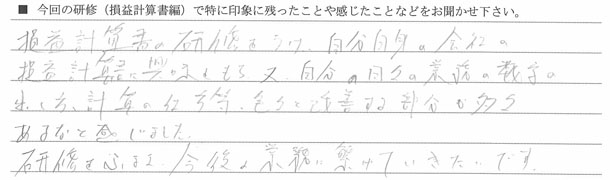 ■ 今回の研修（損益計算書編）で特に印象に残ったことや感じたことなどをお聞かせ下さい。
損益計算書の研修をうけ、自分自身の会社の
損益計算書に興味をもち、又、自分の日々の業務の数字の
出し方、計算の仕方等、色々と改善する部分が多く
あるなと感じました。
研修をふまえ、今後の業務に繋げていきたいです。